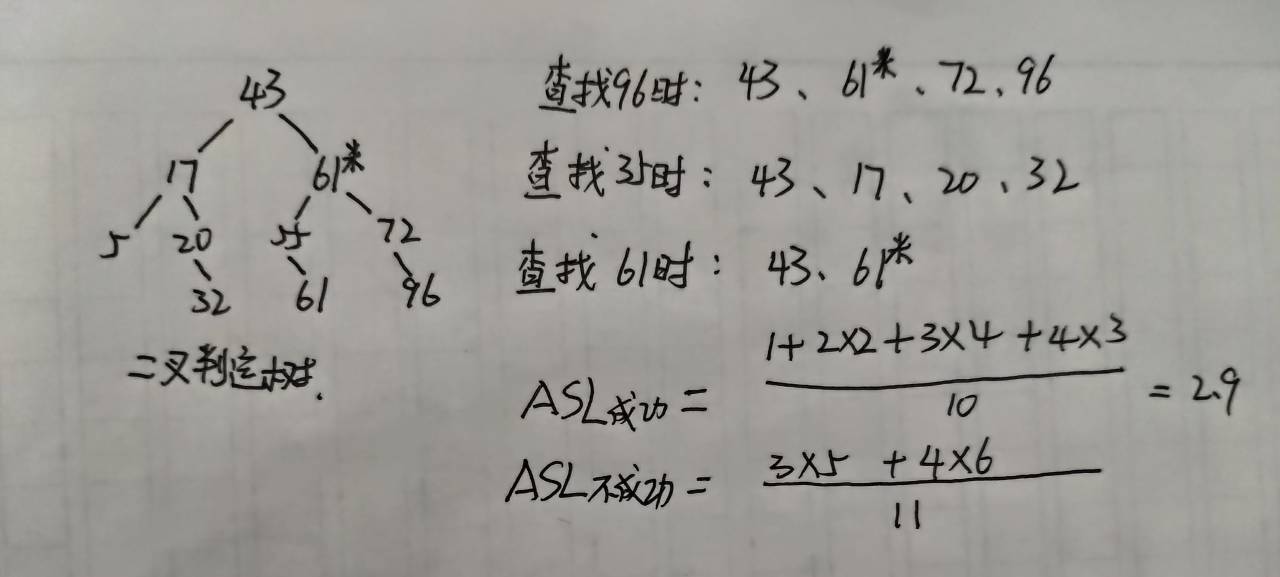 43
17 61*
5 20 55 72
32 61 96
二叉判定树.
查找96时: 43、61*、72、96
查找35时: 43、17、20、32
查找 61时: 43、61*
ASL成功 = (1+2×2+3×4+4×3)/10 = 2.9
ASL不成功 = (3×5+4×6)/11